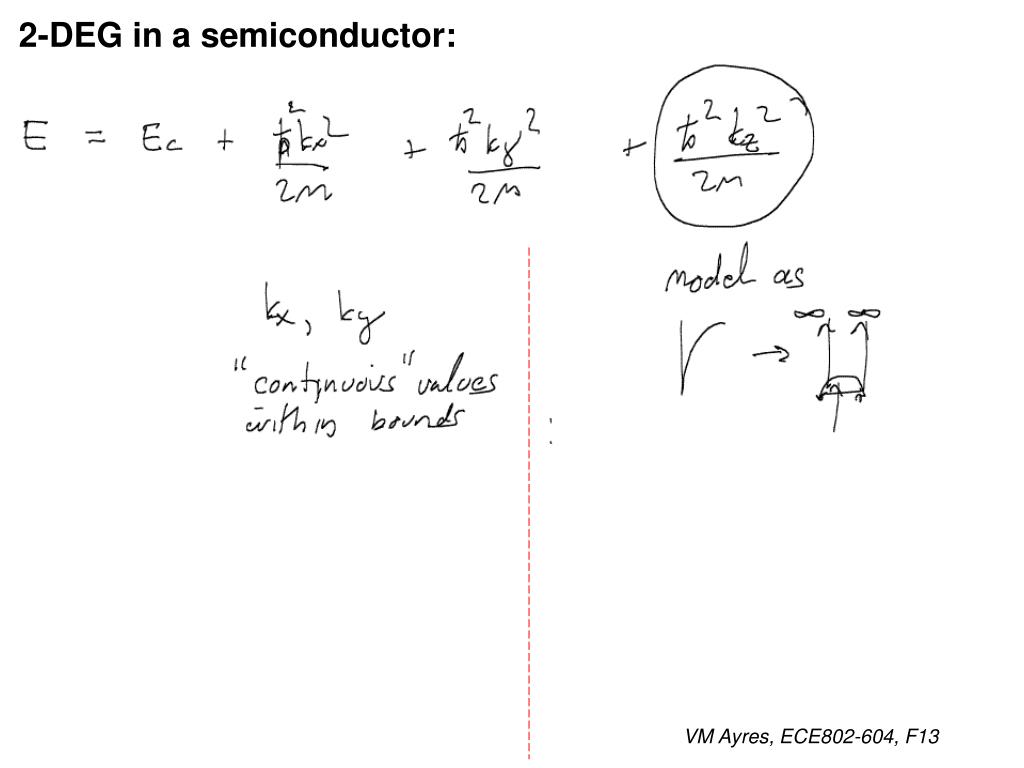 2-DEG in a semiconductor:
E = Ec + ħ²kx²/2m + ħ²ky²/2m + ħ²kz²/2m
model as
kx, ky
∞ ∞
→
"continuous" values
within bounds
VM Ayres, ECE802-604, F13